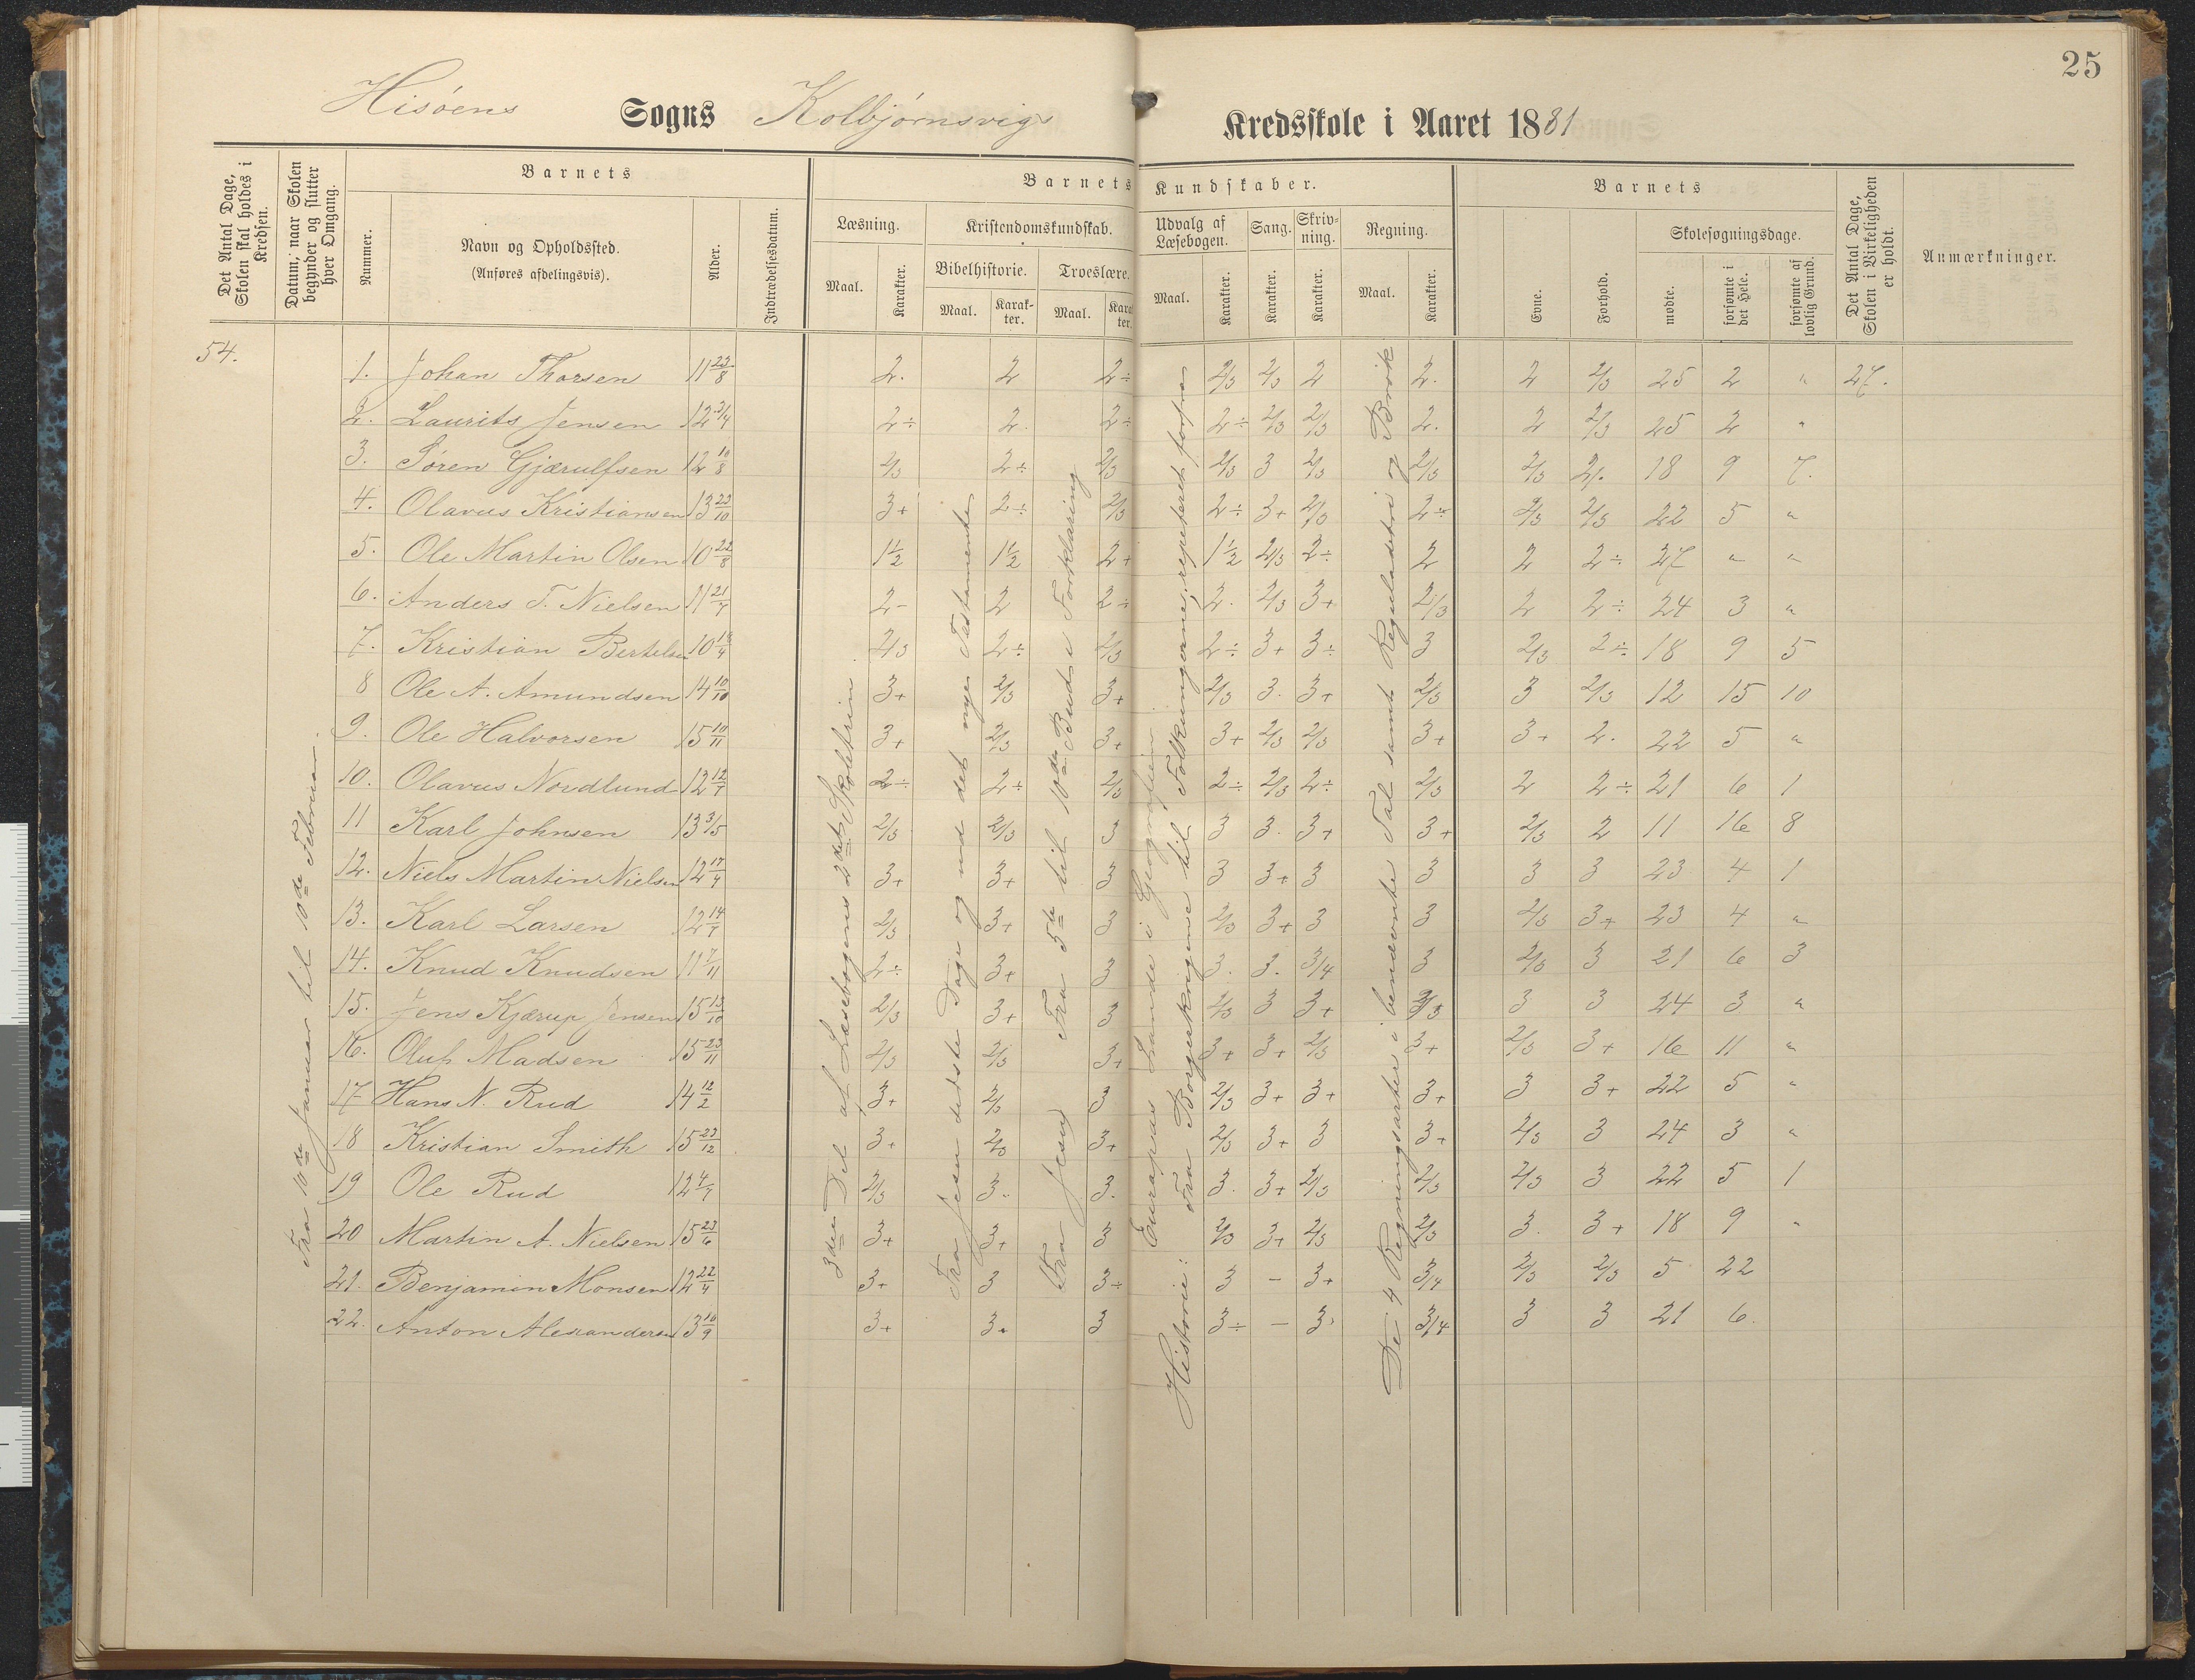 25
Hisöens Sogns Kolbjörnsvigs Kredsskole i Aaret 1881
Det Antal Dage, Skolen skal holdes i Kredsen.
Datum, naar Skolen begynder og slutter hver Omgang.
Barnets
Nummer.
Navn og Opholdssted.
(Anføres afdelingsvis).
Alder.
Indtrædelsesdatum.
Barnets Kundskaber.
Læsning.
Maal.
Karakter.
Kristendomskundskab.
Bibelhistorie.
Maal.
Karakter.
Troeslære.
Maal.
Karakter.
Udvalg af Læsebogen.
Maal.
Karakter.
Sang.
Karakter.
Skrivning.
Karakter.
Regning.
Maal.
Karakter.
Barnets
Evne.
Forhold.
Skolesøgningsdage.
mødte.
forsømte i det Hele.
forsømte af lovlig Grund.
Det Antal Dage, Skolen i Virkeligheden er holdt.
Anmærkninger.
54.
Fra 10de Januar til 10de Februar.
3die Del af Læsebogens 2det Skoletrin.
Fra Jesu sidste Dage og ud det nye Testamente
Fra 5te til 10de Bud i Forklaring
Fra Jesu
Europas Lande i Geografien.
Historie: Fra Borgerkrigene til Folkungerne; repeteret forfra
De 4 Regningsarter i benævnte Tal samt Reguladetri og Brøk
1. Johan Thorsen 11 23/8 2. 2 2÷ 2/3 2/3 2 2. 2 2/3 25 2 " 27.
2. Laurits Jensen 12 3/4 2÷ 2. 2÷ 2÷ 2/3 2/3 2. 2 2/3 25 2 "
3. Søren Gjærulfsen 12 10/8 2/3 2÷ 2/3 2/3 3 2/3 2/3 2/3 2. 18 9 7.
4. Olavus Kristiansen 13 23/10 3+ 2÷ 2/3 2÷ 3+ 2/3 2÷ 2/3 2/3 22 5 "
5. Ole Martin Olsen 10 22/8 1½ 1½ 2+ 1½ 2/3 2÷ 2 2 2÷ 27 " "
6. Anders T. Nielsen 11 21/7 2- 2 2÷ 2. 2/3 3+ 2/3 2 2÷ 24 3 "
7. Kristian Bertelsen 10 18/4 2/3 2÷ 2/3 2÷ 3+ 3÷ 3 2/3 2÷ 18 9 5
8 Ole A. Amundsen 14 10/10 3+ 2/3 3+ 2/3 3. 3+ 2/3 3 2/3 12 15 10
9. Ole Halvorsen 15 10/11 3+ 2/3 3+ 3+ 2/3 2/3 3+ 3+ 2. 22 5 "
10. Olavus Nordlund 12 12/7 2÷ 2÷ 2/3 2÷ 2/3 2÷ 2/3 2 2÷ 21 6 1
11 Karl Johnsen 13 3/5 2/3 2/3 3 3 3. 3+ 3+ 2/3 2 11 16 8
12. Niels Martin Nielsen 12 17/4 3+ 3+ 3 3 3+ 3 3 3 3 23 4 1
13. Karl Larsen 12 14/7 2/3 3+ 3 2/3 3+ 3 3 2/3 3+ 23 4 "
14. Knud Knudsen 11 7/11 2÷ 3+ 3 3. 3. 3/4 3 2/3 3 21 6 3
15. Jens Kjærup Jensen 15 13/10 2/3 3+ 3 2/3 3 3+ 2/3 3 3 24 3 "
16. Oluf Madsen 15 23/11 2/3 2/3 3+ 3+ 3+ 2/3 3+ 2/3 3+ 16 11 "
17 Hans N. Rud 14 12/2 3+ 2/3 3 2/3 3+ 3+ 3+ 3 3+ 22 5 "
18 Kristian Smith 15 23/12 3+ 2/3 3+ 2/3 3+ 3 3+ 2/3 3 24 3 "
19 Ole Rud 12 4/7 2/3 3. 3. 3. 3+ 2/3 2/3 2/3 3 22 5 1
20 Martin A. Nielsen 15 23/6 3+ 3+ 3 2/3 3+ 2/3 2/3 3. 3+ 18 9 "
21. Benjamin Monsen 12 22/4 3+ 3 3÷ 3 - 3+ 3/4 2/3 2/3 5 22
22. Anton Alexandersen 13 10/9 3+ 3+ 3 3÷ - 3. 3/4 3 3 21 6.